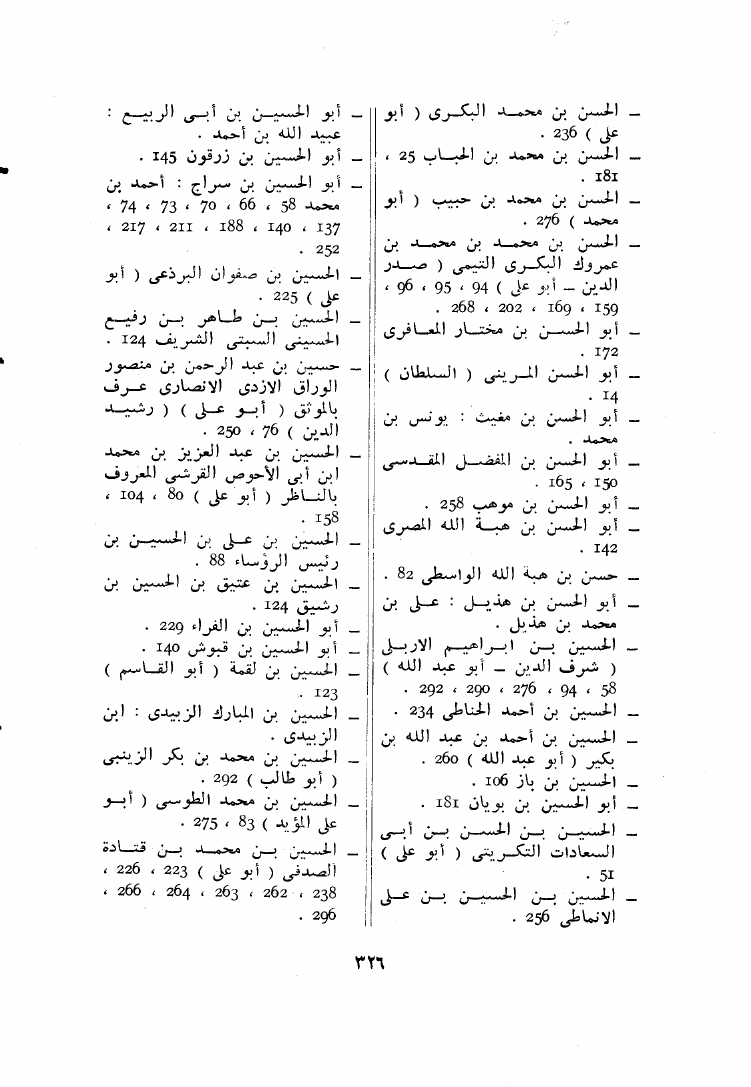 – الحسن بن محمد البكرى ( أبو
على ) 236 .
– الحسن بن محمد بن الحباب 25 ،
181 .
– الحسن بن محمد بن حبيب ( أبو
محمد ) 276 .
– الحسن بن محمد بن محمد بن
عمروك البكرى التيمى ( صدر
الدين – أبو على ) 94 ، 95 ، 96 ،
159 ، 169 ، 202 ، 268 .
– أبو الحسن بن مختار المعافرى
172 .
– أبو الحسن المرينى ( السلطان )
14 .
– أبو الحسن بن مغيث : يونس بن
محمد .
– أبو الحسن بن المفضل المقدسى
150 ، 165 .
– أبو الحسن بن موهب 258 .
– أبو الحسن بن هبة الله المصرى
142 .
– حسن بن هبة الله الواسطى 82 .
– أبو الحسن بن هذيل : على بن
محمد بن هذيل .
– الحسين بن ابراهيم الاربلى
( شرف الدين – أبو عبد الله )
58 ، 94 ، 276 ، 290 ، 292 .
– الحسين بن أحمد الحناطى 234 .
– الحسين بن أحمد بن عبد الله بن
بكير ( أبو عبد الله ) 260 .
– الحسين بن باز 106 .
– أبو الحسين بن بويان 181 .
– الحسين بن الحسن بن أبى
السعادات التكريتى ( أبو على )
51 .
– الحسين بن الحسين بن على
الانماطى 256 .
– أبو الحسين بن أبى الربيع :
عبيد الله بن أحمد .
– أبو الحسين بن زرقون 145 .
– أبو الحسين بن سراج : أحمد بن
محمد 58 ، 66 ، 70 ، 73 ، 74 ،
137 ، 140 ، 188 ، 211 ، 217 ،
252 .
– الحسين بن صفوان البرذعى ( أبو
على ) 225 .
– الحسين بن طاهر بن رفيع
الحسينى السبتى الشريف 124 .
– حسين بن عبد الرحمن بن منصور
الوراق الازدى الانصارى عرف
بالموثق ( أبو على ) ( رشيد
الدين ) 76 ، 250 .
– الحسين بن عبد العزيز بن محمد
ابن أبى الأحوص القرشى المعروف
بالناظر ( أبو على ) 80 ، 104 ،
158 .
– الحسين بن على بن الحسين بن
رئيس الرؤساء 88 .
– الحسين بن عتيق بن الحسين بن
رشيق 124 .
– أبو الحسين بن الفراء 229 .
– أبو الحسين بن قبوش 140 .
– الحسين بن لقمة ( أبو القاسم )
123 .
– الحسين بن المبارك الزبيدى : ابن
الزبيدى .
– الحسين بن محمد بن بكر الزينبى
( أبو طالب ) 292 .
– الحسين بن محمد الطوسى ( أبو
على المؤيد ) 83 ، 275 .
– الحسين بن محمد بن قتادة
الصدفى ( أبو على ) 223 ، 226 ،
238 ، 262 ، 263 ، 264 ، 266 ،
296 .
٣٢٦